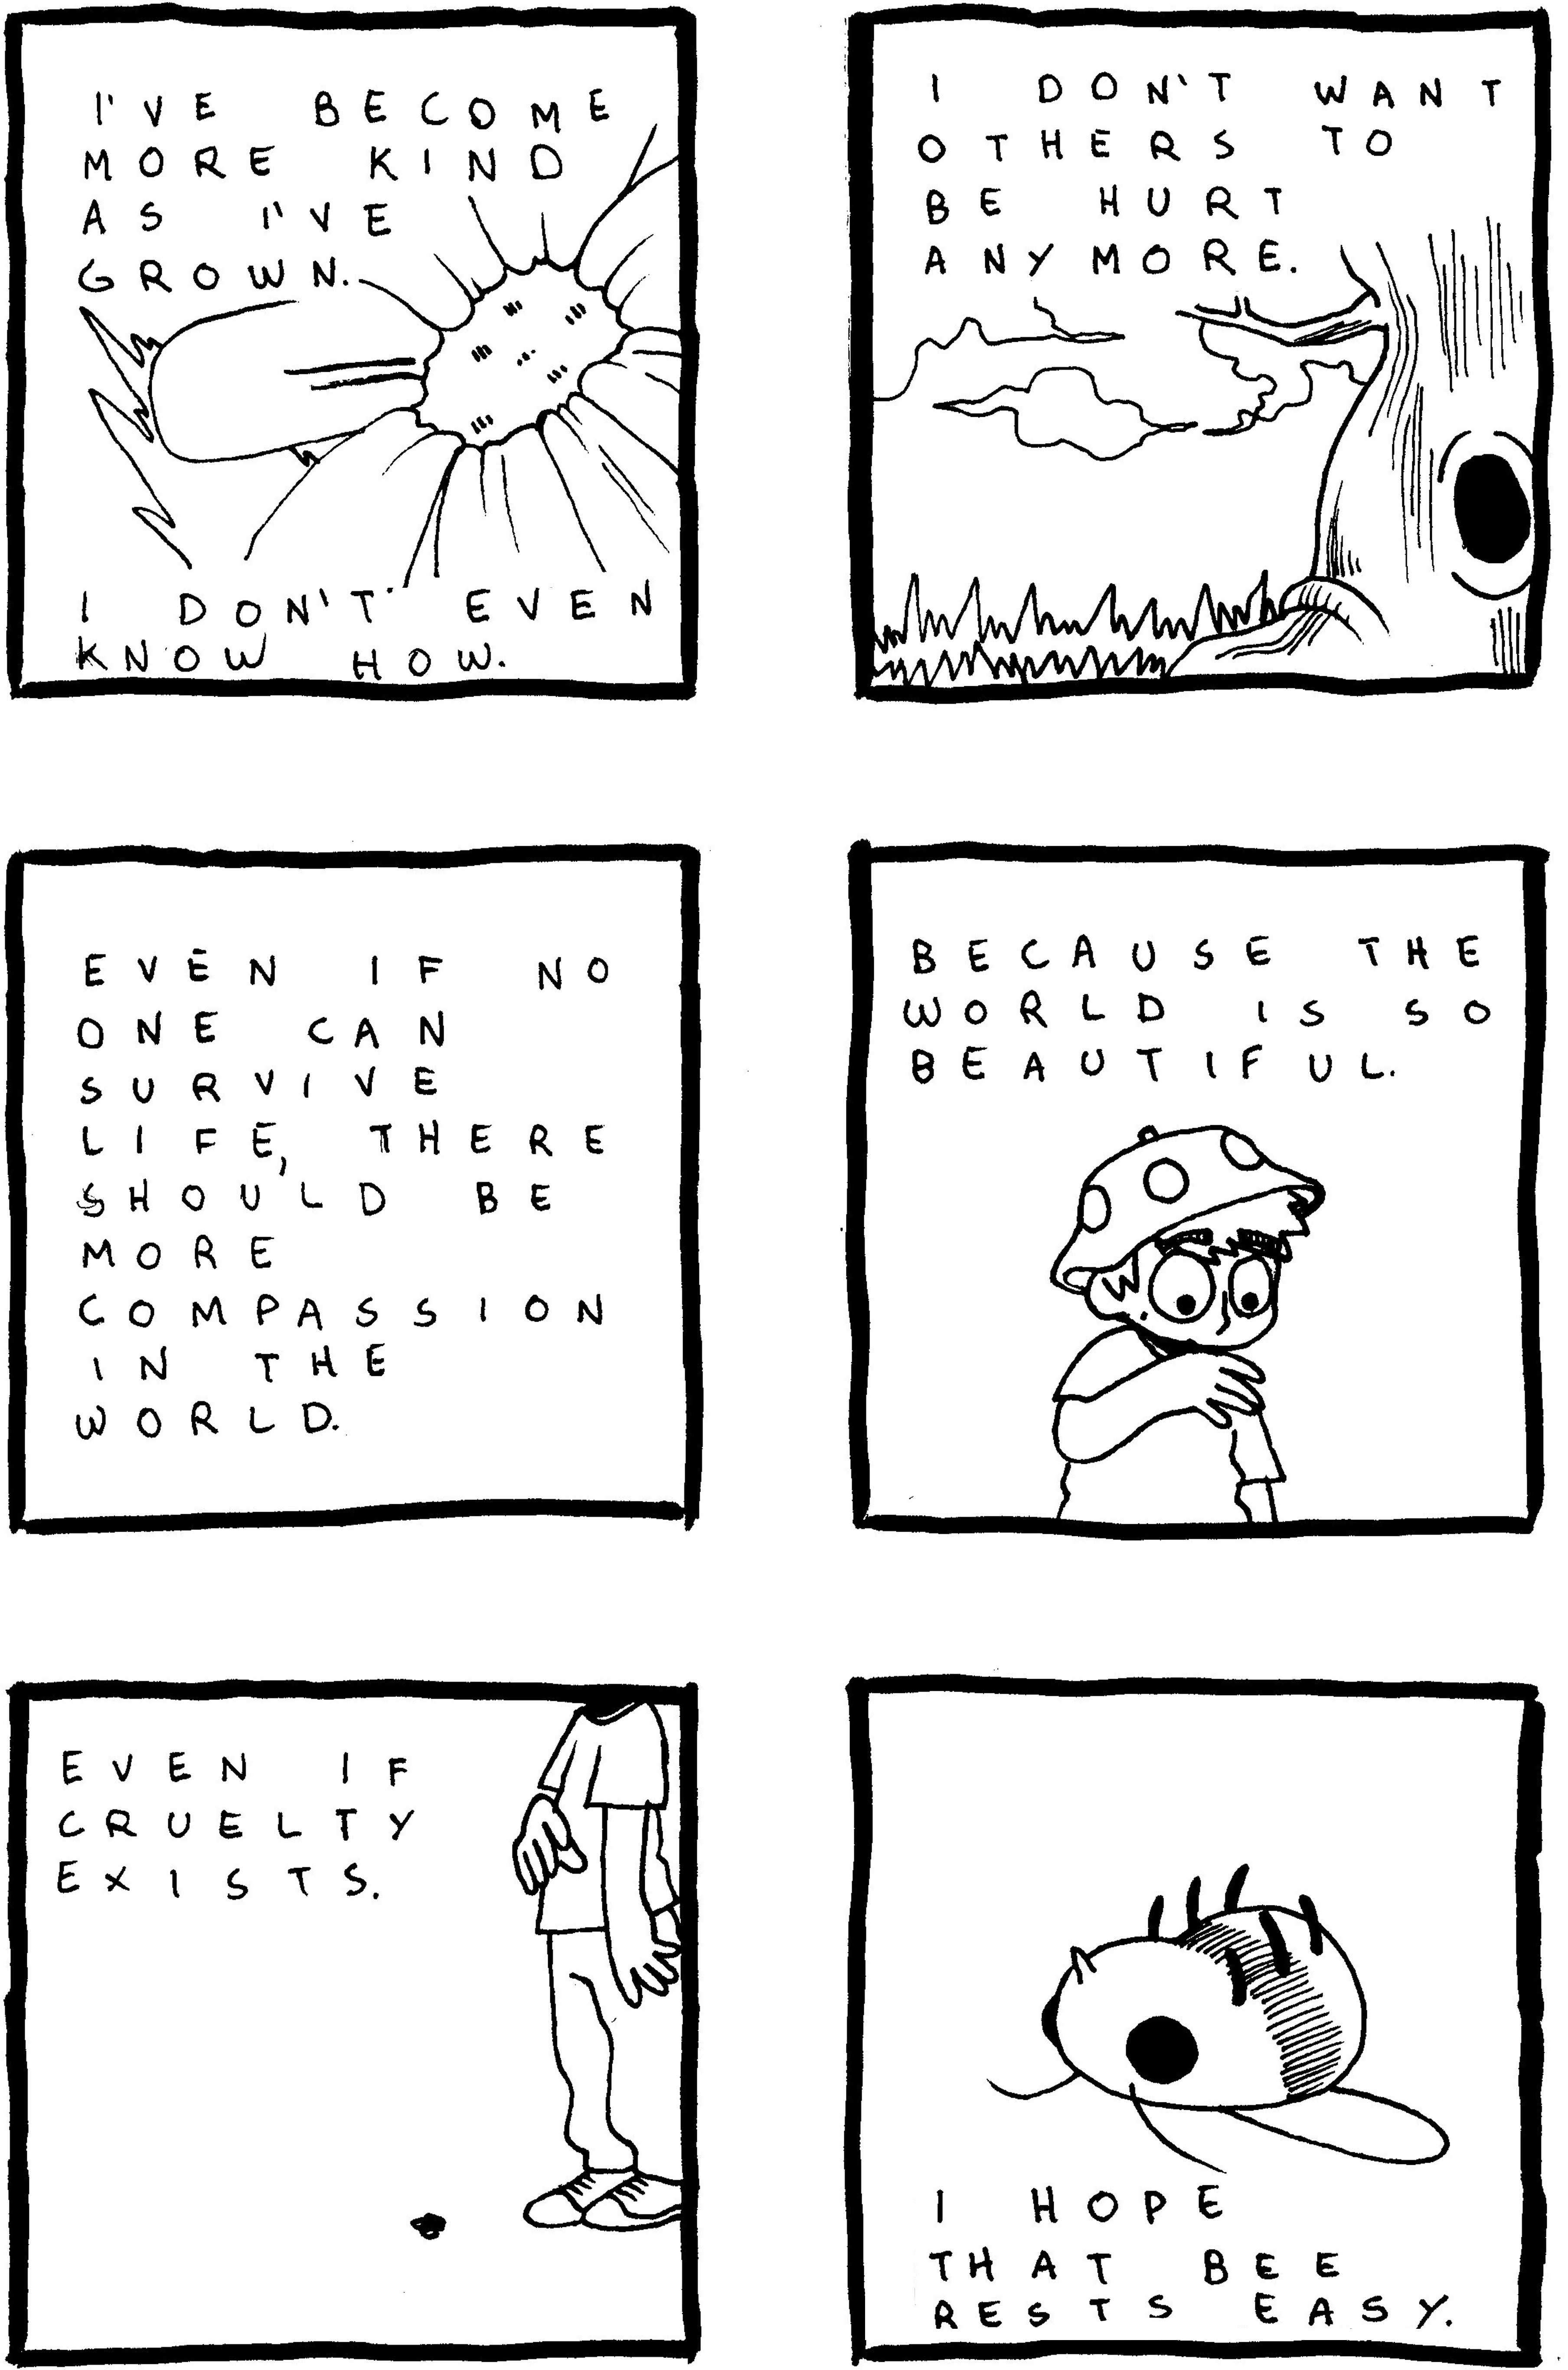 I'VE BECOME
MORE KIND
AS I'VE
GROWN.
I DON'T EVEN
KNOW HOW.
I DON'T WANT
OTHERS TO
BE HURT
ANYMORE.
EVEN IF NO
ONE CAN
SURVIVE
LIFE, THERE
SHOULD BE
MORE
COMPASSION
IN THE
WORLD.
BECAUSE THE
WORLD IS SO
BEAUTIFUL.
EVEN IF
CRUELTY
EXISTS.
I HOPE
THAT BEE
RESTS EASY.